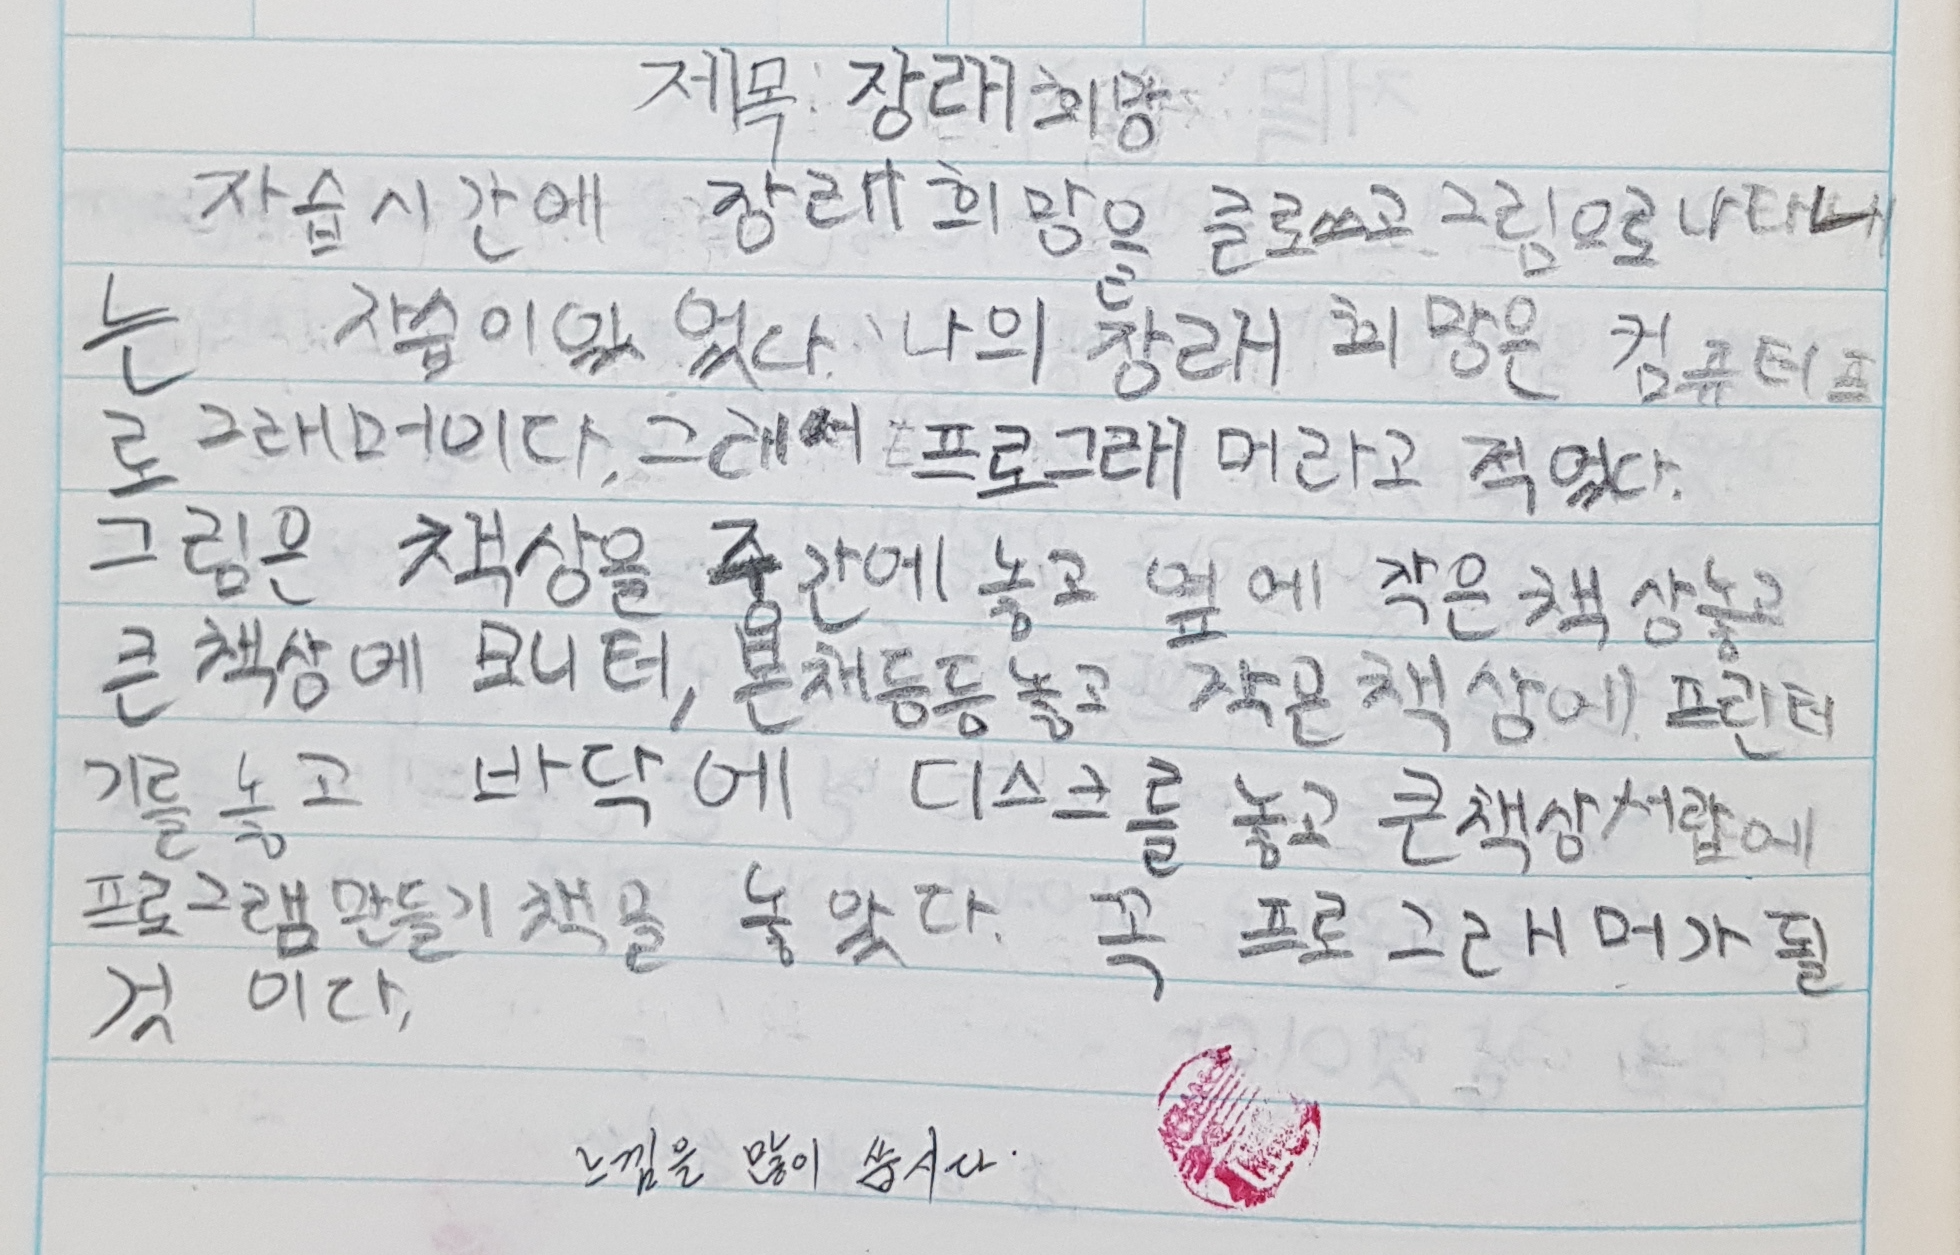 제목: 장래희망
자습시간에 장래희망을 글로쓰고 그림으로 나타내
는 자습이 있었다. 나의 장래 희망은 컴퓨터 프
로그래머이다. 그래서 프로그래머라고 적었다.
그림은 책상을 중간에 놓고 옆에 작은 책상놓고
큰 책상에 모니터, 본체등등놓고 작은책상에 프린터
기를 놓고 바닥에 디스크를 놓고 큰책상서랍에
프로그램만들기 책을 놓았다. 꼭 프로그래머가 될
것 이다.
느낌을 많이 씁시다.